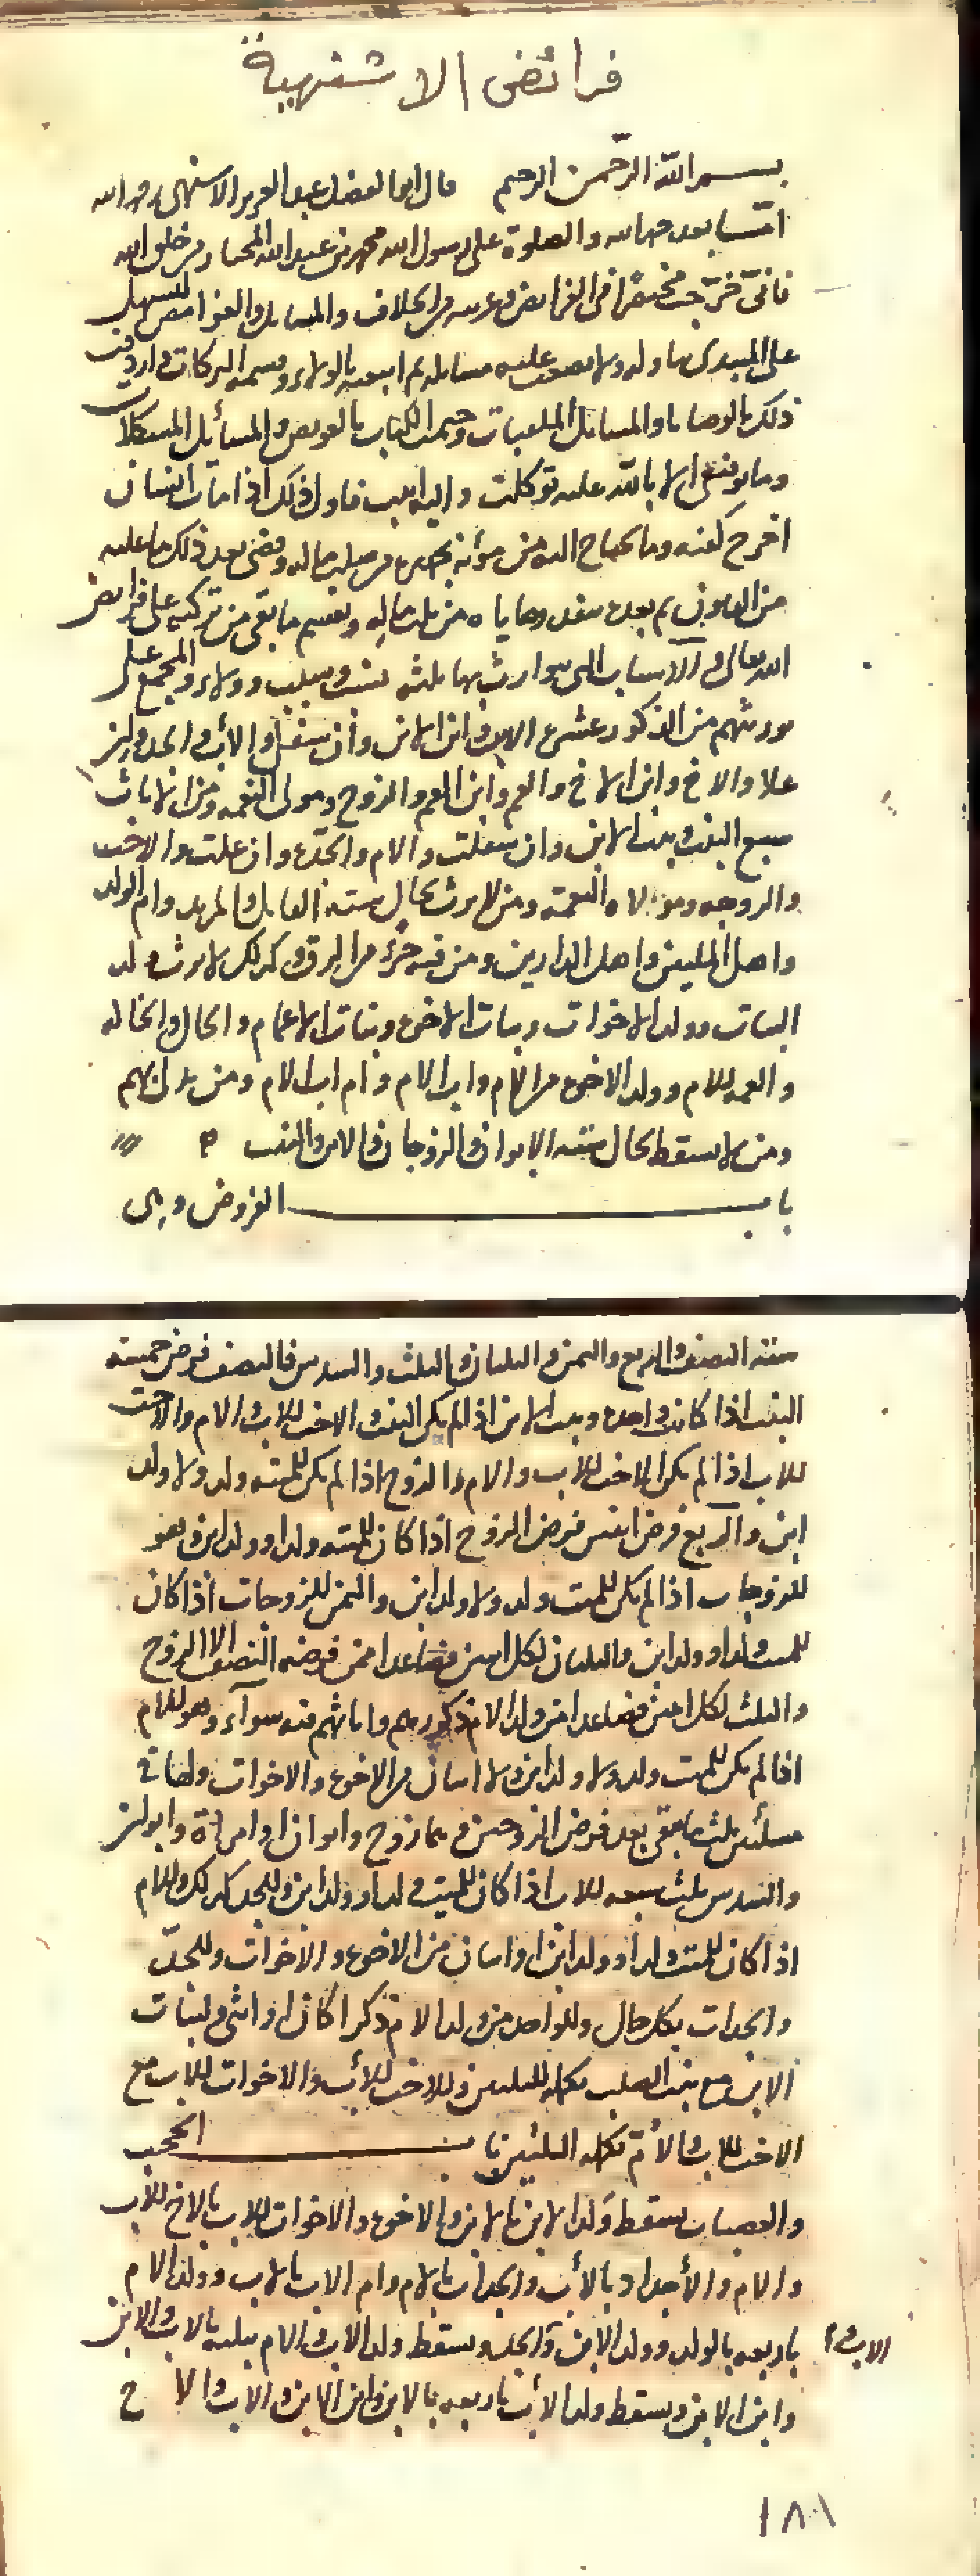 فرائض الاشنهية
بسم الله الرحمن الرحيم قال ابو الفضل عبد العزيز الاشنهي رحمه الله
اما بعد حمد الله والصلوة على رسول الله محمد بن عبد الله المختار من خلق الله
فانني خرجت مختصرا في الفرائض وعريته من الخلاف والمسائل والغوامض ليسهل
على المبتدي تناوله ولا يصعب عليه مسائله ثم اتبعته بالولاء وقسمة التركات واردفت
ذلك بالوصايا والمسائل الملقبات وختمت الكتاب بالعويص والمسائل المشكلات
وما توفيقي الا بالله عليه توكلت واليه انيب فاول ذلك اذا مات انسان
اخرج كفنه وما يحتاج اليه من مؤنة تجهيزه من صلب ماله وقضي بعد ذلك ما عليه
من الديون ثم بعده تنفد وصاياه من ثلث ماله ويقسم ما بقي من تركته على فرائض
الله تعالى والاسباب التي يتوارث بها ثلثة نسب وسبب وولاء والمجمع على
توريثهم من الذكور عشرة الابن وابن الابن وان سفل والاب والجد وان
علا والاخ وابن الاخ والعم وابن العم والزوج ومولى النعمة ومن الاناث
سبع البنت وبنت الابن وان سفلت والام والجدة وان علت والاخت
والزوجه ومولاة النعمة ومن لا يرث بحال ستة القاتل والمرتد وام الولد
واهل الملتين واهل الدارين ومن فيه جزء من الرق وكذلك لا يرث ولد
البنات وولد الاخوات وبنات الاخوة وبنات الاعمام والخال والخاله
والعمه للام وولد الاخوة من الام واب الام وام اب الام ومن يدلي بهم
ومن لا يسقط بحال ستة الابوان والزوجان والابن والبنت
باب الفروض وهي
ستة النصف والربع والثمن والثلثان والثلث والسدس فالنصف فرض خمسة
البنت اذا كانت واحدة وبنت الابن اذا لم يكن البنت والاخت للاب والام والاخت
للاب اذا لم يكن الاخت للاب والام والزوج اذا لم يكن للميتة ولد ولا ولد
ابن والربع فرض اثنين فرض الزوج اذا كان للميتة ولد او ولد ابن وهو
للزوجات اذا لم يكن للميت ولد ولا ولد ابن والثمن للزوجات اذا كان
للميت ولد او ولد ابن والثلثان لكل اثنين فصاعدا ممن فرضه النصف الا الزوج
والثلث لكل اثنين فصاعدا من ولد الام ذكورهم واناثهم فيه سوآء وهو للام
اذا لم يكن للميت ولد ولا ولد ابن ولا اثنان من الاخوة والاخوات ولها في
مسئلتين ثلث ما بقي بعد فرض الزوجين وهما زوج وابوان او امراة وابوان
والسدس فرض سبعه للاب اذا كان للميت ولد او ولد ابن وللجد كذلك وللام
اذا كان للميت ولد او ولد ابن او اثنان من الاخوة والاخوات وللجدة
والجدات بكل حال وللواحد من ولد الام ذكرا كان او انثى ولبنات
الابن مع بنت الصلب تكملة الثلثين وللاخت للاب والاخوات للاب مع
الاخت للاب والام تكملة الثلثين باب الحجب
والعصبات يسقط ولد الابن بالابن والاخوة والاخوات للاب بالاخ للاب
والام والأجداد بالأب والجدات بالام وام الاب بالاب وولد الام
باربعه بالولد وولد الابن والاب والجد ويسقط ولد الاب والام بثلثه بالاب والابن
وابن الابن ويسقط ولد الأب باربعه بالابن وابن الابن والاب والاخ
١٨٠١